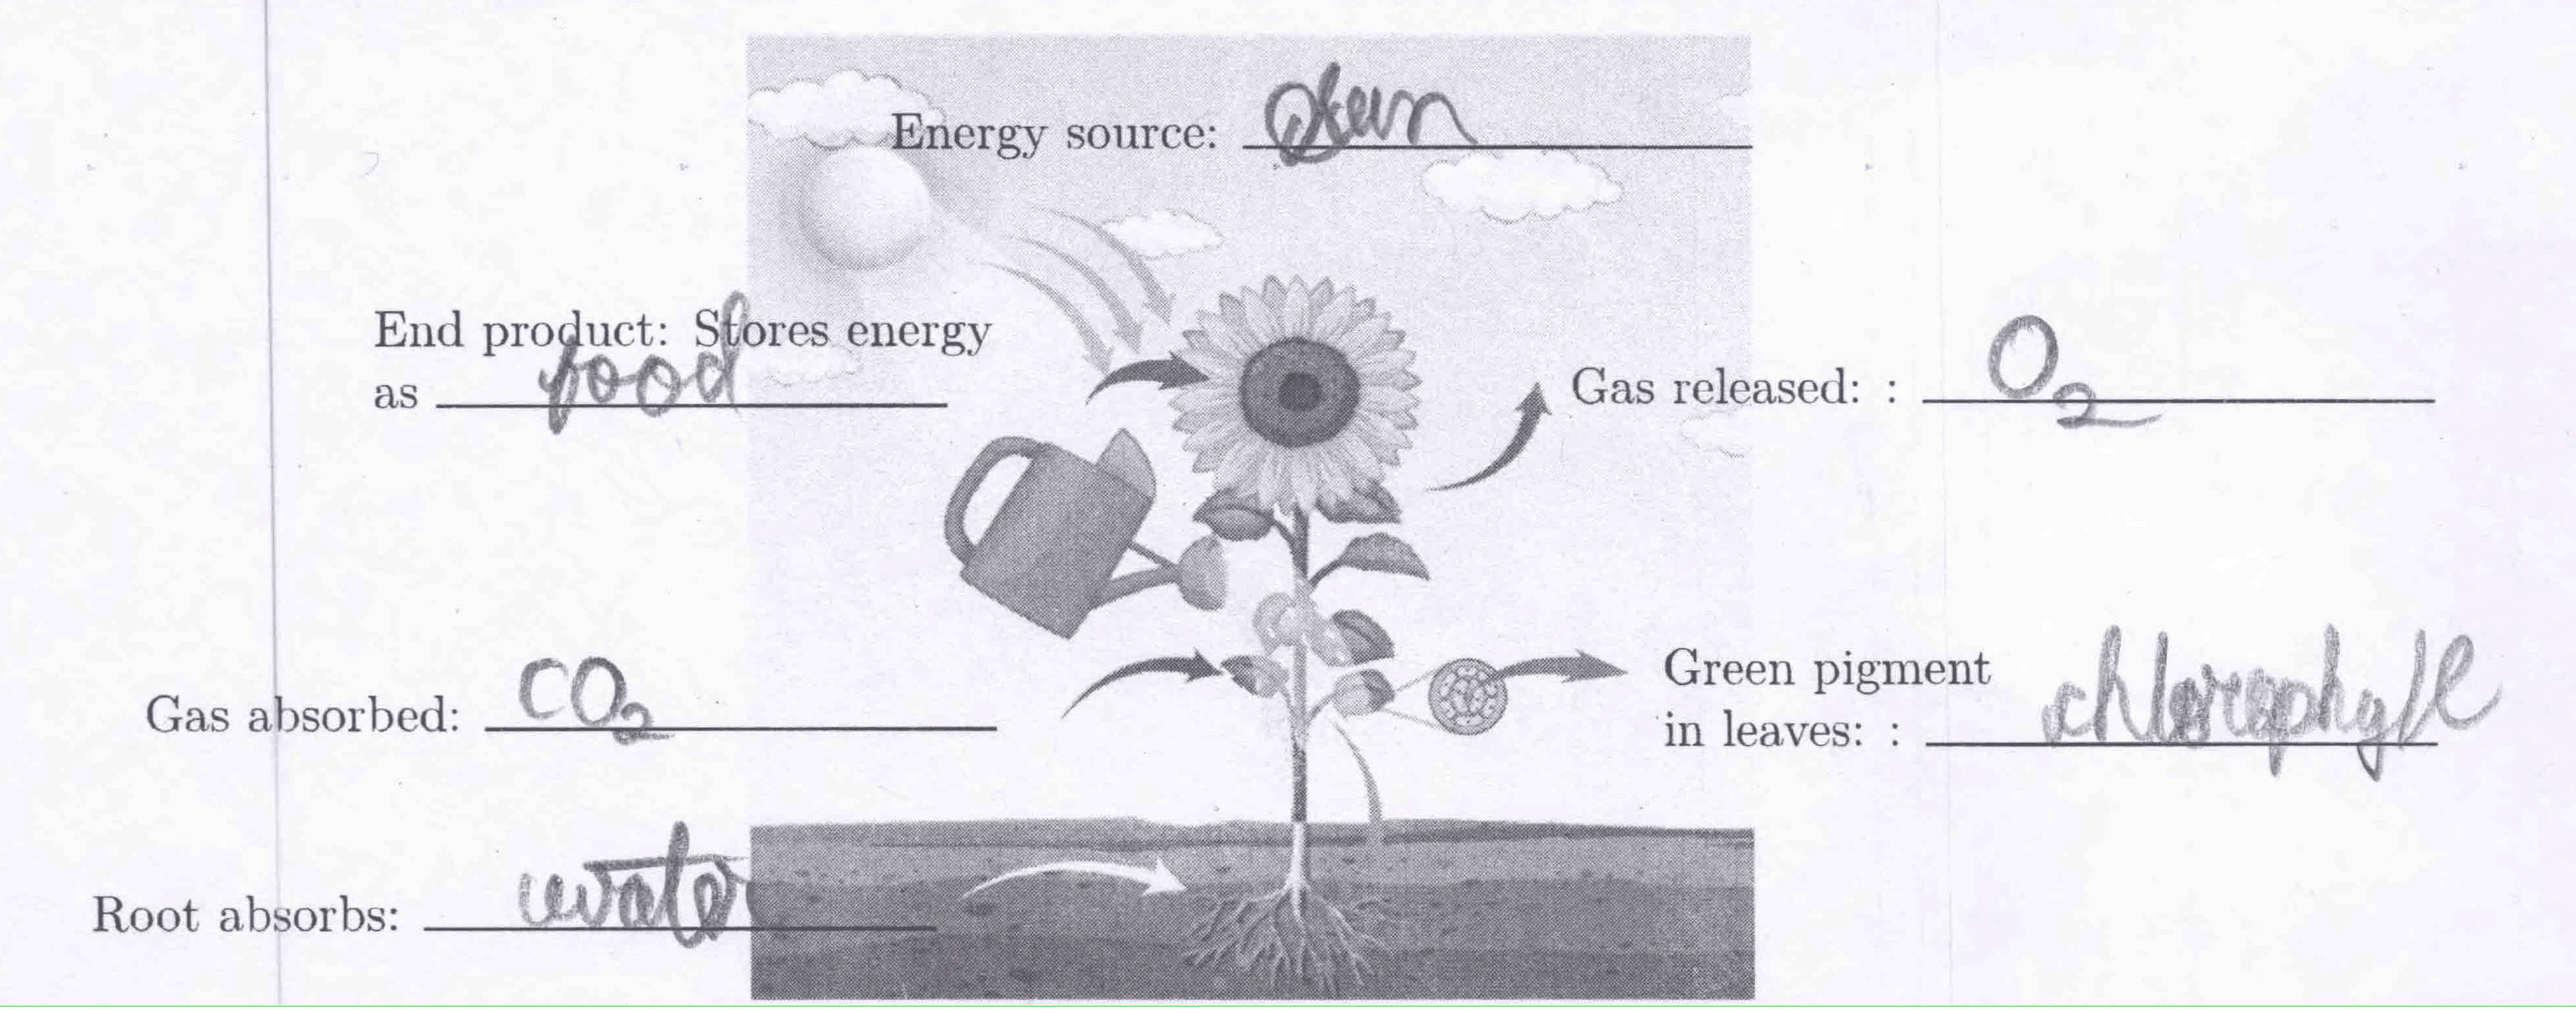 Energy source: Sun
End product: Stores energy
as food
Gas released: : O₂
Gas absorbed: CO₂
Green pigment
in leaves: : chlorophyll
Root absorbs: water